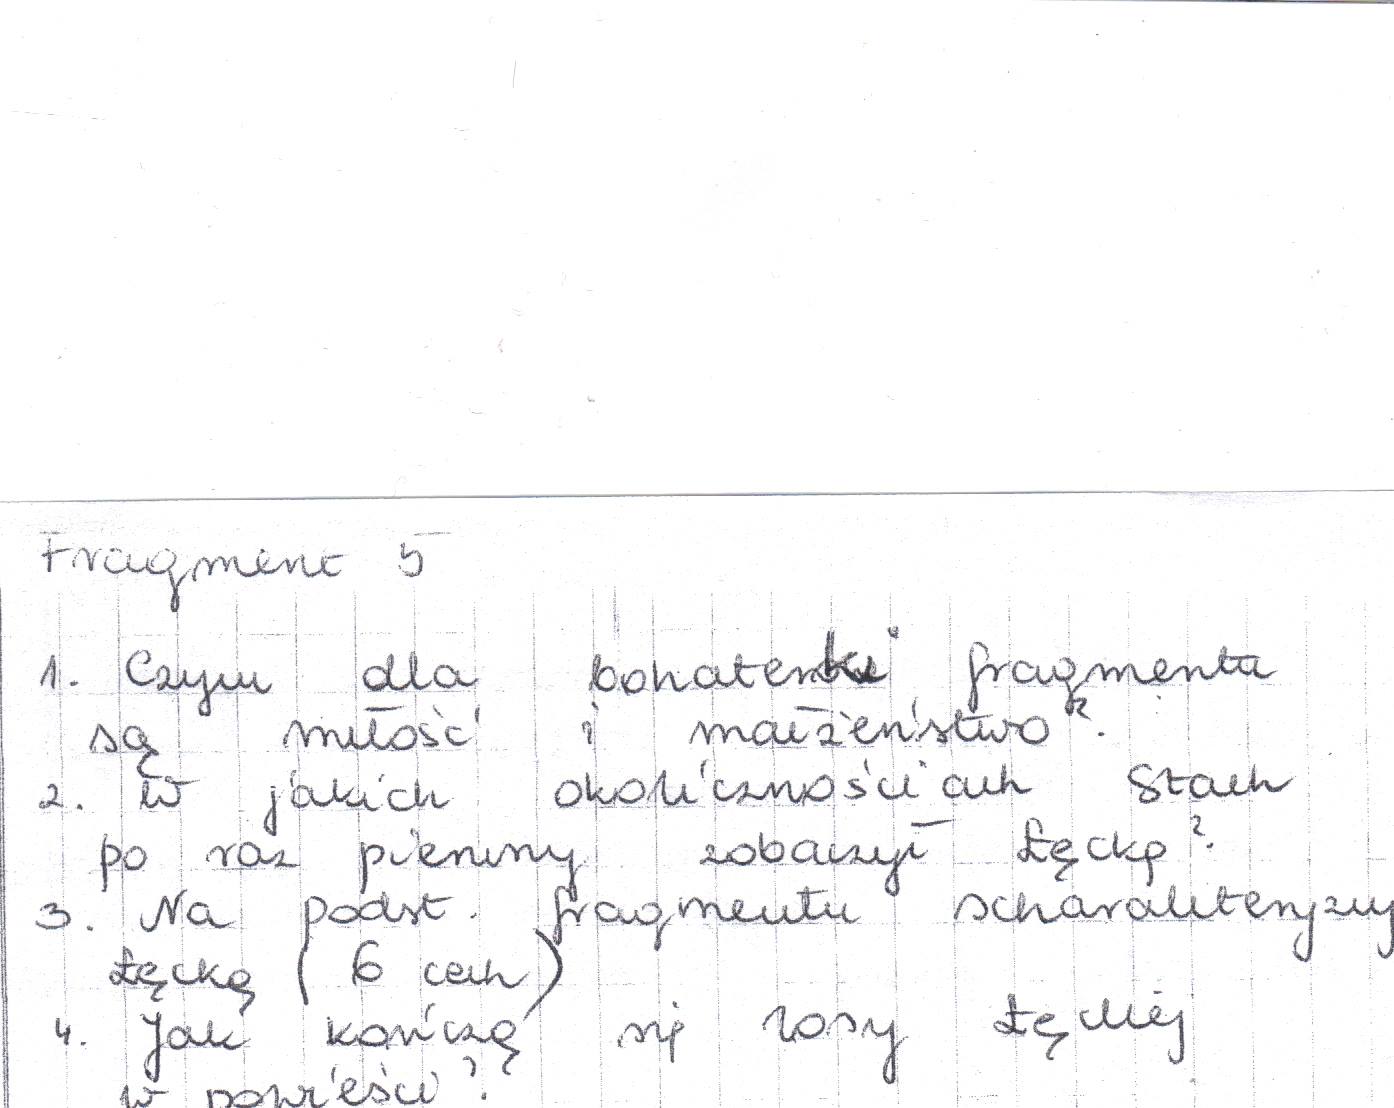 Fragment 5
1. Czym dla bohaterki fragmentu
są miłość i małżeństwo?
2. W jakich okolicznościach Stach
po raz pierwszy zobaczył Łęcką?
3. Na podst. fragmentu scharakteryzuj
Łęcką (6 cech)
4. Jak kończą się losy Łęckiej
w powieści?